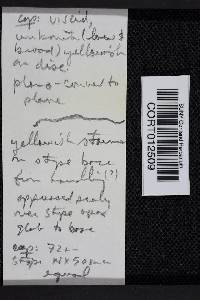 cap: viscid,
umbonate (low &
broad) yellowish
on disc.
plano-convex to
plane
yellowish stains
on stipe base
from handling (?)
appressed scaly
near stipe apex
glob to base
cap: 72
stipe:
equal
CORT012509